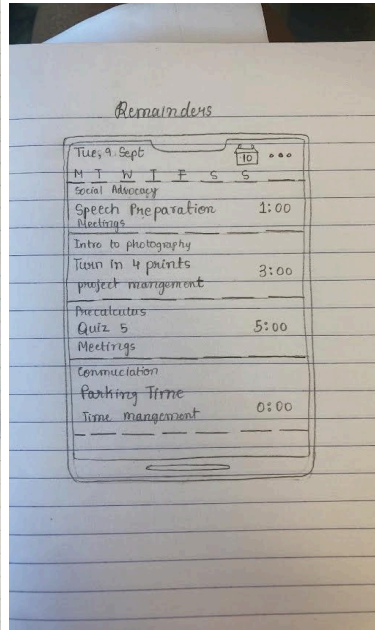 Remainders
Tue, 9 Sept 10
M T W T F S S
Social Advocacy
Speech Preparation 1:00
Meetings
Intro to photography
Turn in 4 prints 3:00
project mangement
Precalculus
Quiz 5 5:00
Meetings
Conmuciation
Parking Time
Time mangement 0:00